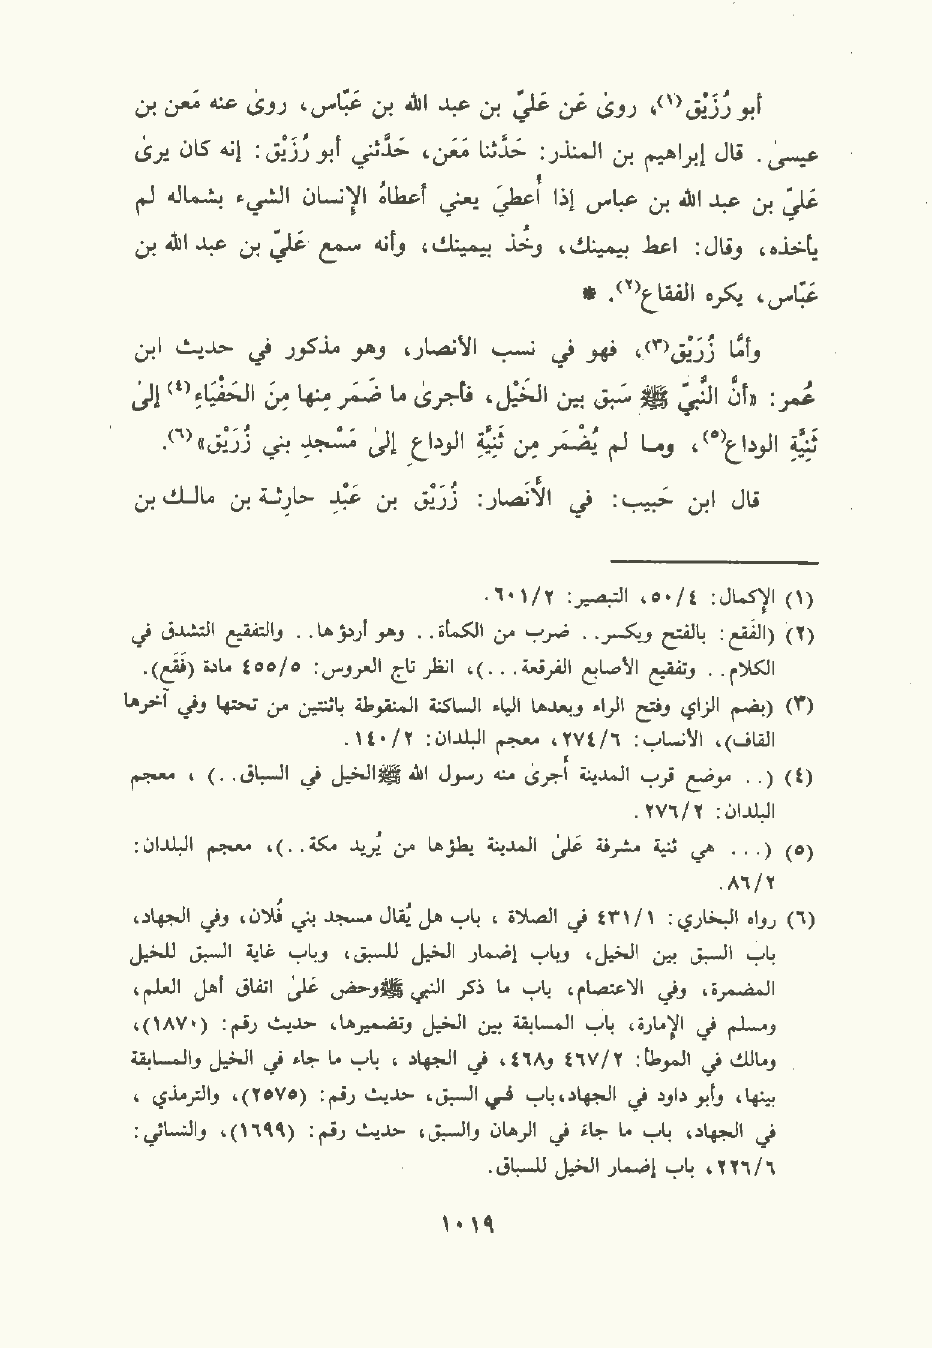 أبو رُزَيْق(١)، روى عن عَليّ بن عبد الله بن عَبّاس، روى عنه مَعن بن
عيسىٰ. قال إبراهيم بن المنذر: حَدَّثنا مَعَن، حَدَّثني أبو رُزَيْق: إنه كان يرىٰ
عَليّ بن عبد الله بن عباس إذا أُعطيَ يعني أعطاهُ الإنسان الشيء بشماله لم
يأخذه، وقال: اعط بيمينك، وخُذ بيمينك، وأنه سمع عَليّ بن عبد الله بن
عَبّاس، يكره الفقاع(٢). *
وأمَّا زُرَيْق(٣)، فهو في نسب الأنصار، وهو مذكور في حديث ابن
عُمر: «أنَّ النَّبيّ ﷺ سَبق بين الخَيْل، فأجرىٰ ما ضَمَر مِنها مِنَ الحَفيَاءِ(٤) إلىٰ
ثَنِيَّةِ الوداع(٥)، وما لم يُضْمَر مِن ثَنِيَّةِ الوداعِ إلىٰ مَسْجدِ بني زُرَيْق»(٦).
قال ابن حَبيب: في الأَنْصار: زُرَيْق بن عَبْدِ حارِثة بن مالك بن
(١) الإكمال: ٤/٥٠، التبصير: ٢/٦٠١.
(٢) (الفَقع: بالفتح ويكسر.. ضرب من الكمأة.. وهو أردؤها.. والتفقيع التشدق في
الكلام.. وتفقيع الأصابع الفرقعة...)، انظر تاج العروس: ٥/٤٥٥ مادة (فَقَع).
(٣) (بضم الزاي وفتح الراء وبعدها الياء الساكنة المنقوطة باثنتين من تحتها وفي آخرها
القاف)، الأنساب: ٦/٢٧٤، معجم البلدان: ٢/١٤٠.
(٤) (.. موضع قرب المدينة أُجرىٰ منه رسول الله ﷺ الخيل في السباق..) ، معجم
البلدان: ٢/٢٧٦.
(٥) (... هي ثنية مشرفة عَلىٰ المدينة يطؤها من يُريد مكة..)، معجم البلدان:
٢/٨٦.
(٦) رواه البخاري: ١/٤٣١ في الصلاة ، باب هل يُقال مسجد بني فُلان، وفي الجهاد،
باب السبق بين الخيل، وباب إضمار الخيل للسبق، وباب غاية السبق للخيل
المضمرة، وفي الاعتصام، باب ما ذكر النبي ﷺ وحض عَلىٰ اتفاق أهل العلم،
ومسلم في الإمارة، باب المسابقة بين الخيل وتضميرها، حديث رقم: (١٨٧٠)،
ومالك في الموطأ: ٢/٤٦٧ و٤٦٨، في الجهاد ، باب ما جاء في الخيل والمسابقة
بينها، وأبو داود في الجهاد،باب في السبق، حديث رقم: (٢٥٧٥)، والترمذي ،
في الجهاد، باب ما جاءَ في الرهان والسبق، حديث رقم: (١٦٩٩)، والنسائي:
٦/٢٢٦، باب إضمار الخيل للسباق.
١٠١٩